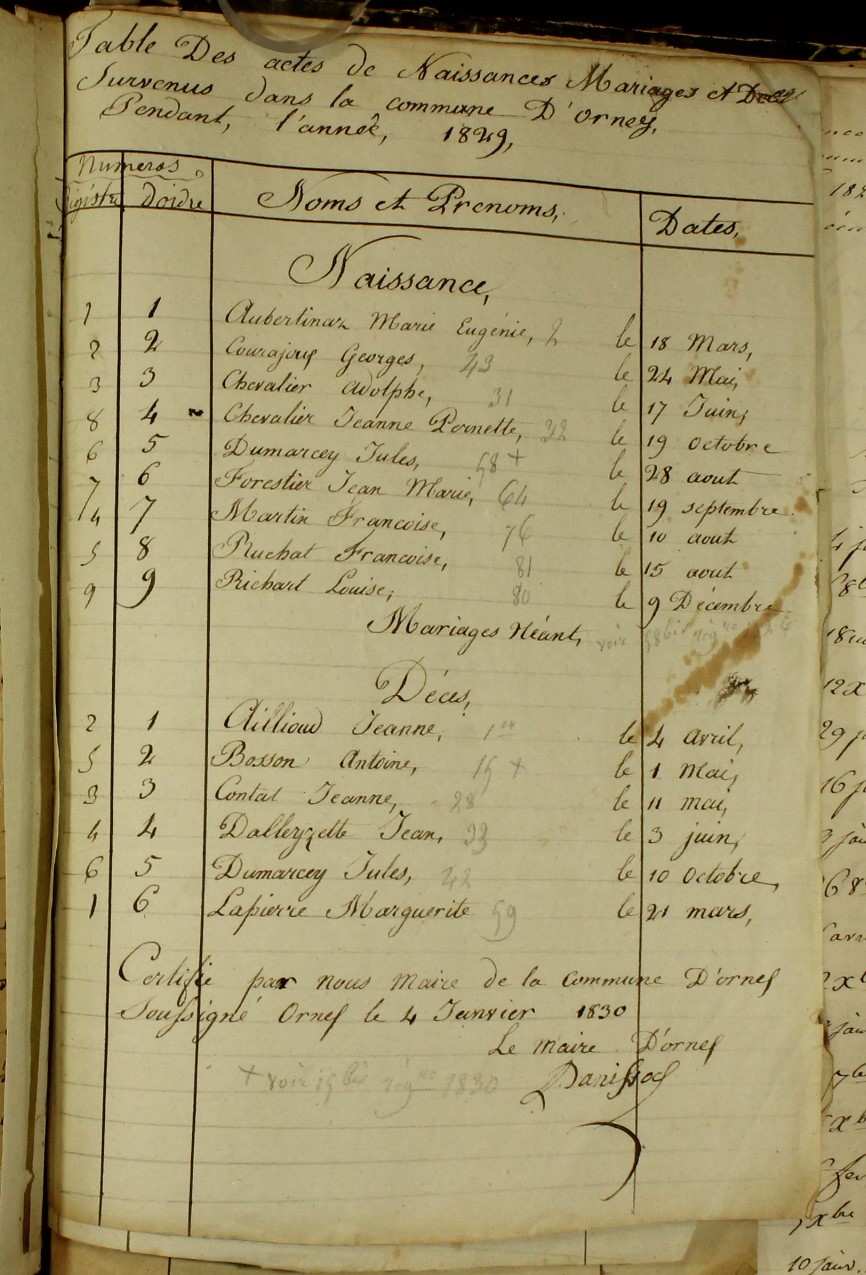 Table Des actes de Naissances Mariages et Deces
Survenus dans la commune D'orney,
Pendant, l'année, 1829,
Numeros
Régistre Doidre Noms et Prenoms, Dates,
Naissance,
1 1 Aubertinaz Marie Eugénie, 2 le 18 Mars,
2 2 Georges, 43 le 24 Mai,
3 3 Chevalier Adolphe, 31 le 17 Juin,
8 4 Chevalier Jeanne Pernette, 32 le 19 octobre
6 5 Dumarcey Jules, 58 + le 28 aout
7 6 Forestier Jean Marie, 64 le 19 septembre
4 7 Martin Francoise, 76 le 10 aout
5 8 Ruchat Francoise, 81 le 15 aout
9 9 Richart Louise, 80 le 9 Décembre
Mariages Néant, voir 58 bis
Déces,
2 1 Aillioud Jeanne, 1 le 4 avril,
5 2 Bosson Antoine, 15 + le 1 Mai,
3 3 Contat Jeanne, 28 le 11 mai,
4 4 Dalleyzette Jean, 33 le 3 juin,
6 5 Dumarcey Jules, 42 le 10 Octobre,
1 6 Lapierre Marguerite 59 le 21 mars,
Certifié par nous Maire de la Commune D'ornes
Soussigné Ornes le 4 Janvier 1830
Le maire D'ornes
+ voir 15 bis 1830